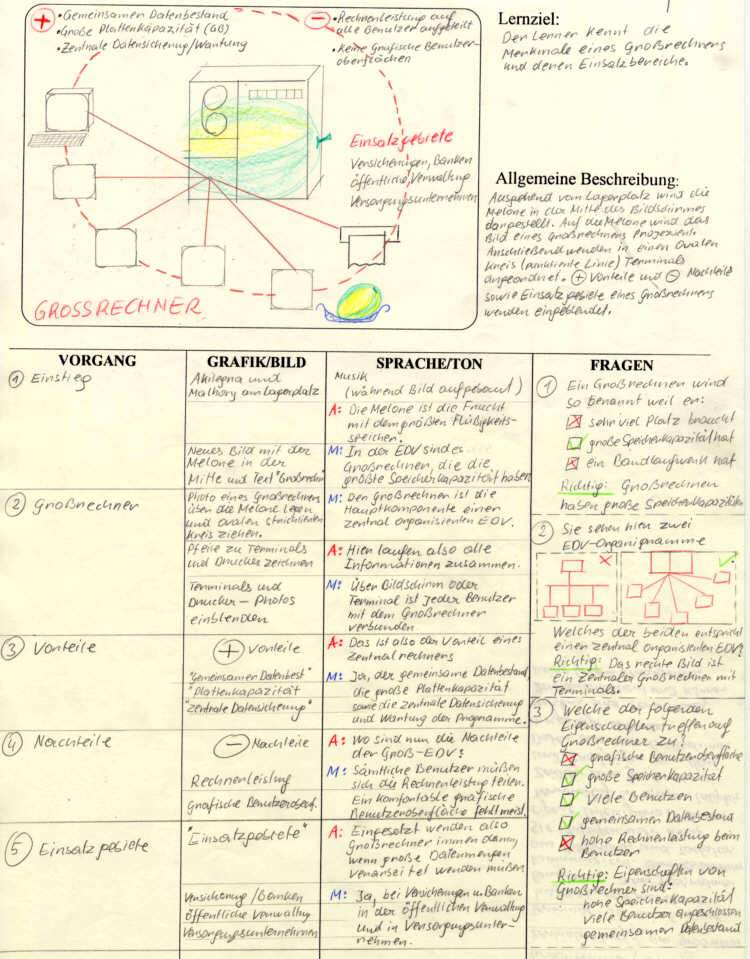 +
• Gemeinsamen Datenbestand
• Große Plattenkapazität (GB)
• Zentrale Datensicherung/Wartung
−
• Rechnenleistung auf
alle Benutzer aufgeteilt
• Keine Grafische Benutzer-
oberflächen
Einsatzgebiete
Versicherungen, Banken
öffentliche Verwaltung
Versorgungsunternehmen
GROSSRECHNER
Lernziel:
Der Lerner kennt die
Merkmale eines Großrechners
und deren Einsatzbereiche.
Allgemeine Beschreibung:
Ausgehend vom Lagerplatz wird die
Melone in der Mitte des Bildschirmes
dargestellt. Auf die Melone wird das
Bild eines Großrechners projeziert.
Anschließend werden in einen Ovalen
Kreis (punktierte Linie) Terminals
angeordnet. + Vorteile und − Nachteile
sowie Einsatzgebiete eines Großrechners
werden eingeblendet.
VORGANG
GRAFIK/BILD
SPRACHE/TON
FRAGEN
1 Einstieg
Akilegna und
Malhory am Lagerplatz
Musik
(während Bild aufgebaut)
A: Die Melone ist die Frucht
mit dem größten Flüßigkeits-
speicher.
Neues Bild mit der
Melone in der
Mitte und Text "Großrechn"
M: In der EDV sind es
Großrechner, die die
größte Speicherkapazität haben
2 Großrechner
Photo eines Großrechners
über die Melone legen
und ovalen strichlierten
Kreis ziehen.
M: Der Großrechner ist die
Hauptkomponente einer
zentral organisierten EDV.
Pfeile zu Terminals
und Drucker zeichnen
A: Hier laufen also alle
Informationen zusammen.
Terminals und
Drucker – Photos
einblenden
M: Über Bildschirm oder
Terminal ist jeder Benutzer
mit dem Großrechner
verbunden
3 Vorteile
+ Vorteile
"Gemeinsamer Datenbest"
"Plattenkapazität
"Zentrale Datensicherung"
A: Das ist also der Vorteil eines
Zentralrechners
M: Ja, der gemeinsame Datenbestand,
die große Plattenkapazität
sowie die zentrale Datensicherung
und Wartung der Programme.
4 Nachteile
− Nachteile
Rechnerleistung
Grafische Benutzeroberf.
A: Wo sind nun die Nachteile
der Groß-EDV?
M: Sämtliche Benutzer müßen
sich die Rechnerleistung teilen.
Ein Komfortable grafische
Benutzeroberfläche fehlt meist.
5 Einsatzgebiete
"Einsatzgebiete"
A: Eingesetzt werden also
Großrechner immer dann,
wenn große Datenmengen
verarbeitet werden müßen
Versicherung/Banken
öffentliche Verwaltung
Versorgungsunternehmen
M: Ja, bei Versicherungen u. Banken
in der öffentlichen Verwaltung
und in Versorgungsunter-
nehmen.
1 Ein Großrechner wird
so benannt weil er:
sehr viel Platz braucht
große Speicherkapazität hat
ein Bandlaufwerk hat
Richtig: Großrechner
haben große Speicherkapazität
2 Sie sehen hier zwei
EDV-Organigramme
Welches der beiden entspricht
einen zentral organisierten EDV?
Richtig: Das rechte Bild ist
ein Zentraler Großrechner mit
Terminals.
3 Welche der folgenden
Eigenschaften treffen auf
Großrechner zu?
grafische Benutzeroberfläche
große Speicherkapazität
Viele Benutzer
gemeinsamen Datenbestand
hohe Rechnerleistung beim
Benutzer
Richtig: Eigenschaften von
Großrechner sind:
hohe Speicherkapazität
viele Benutzer angeschlossen
gemeinsamen Datenbestand